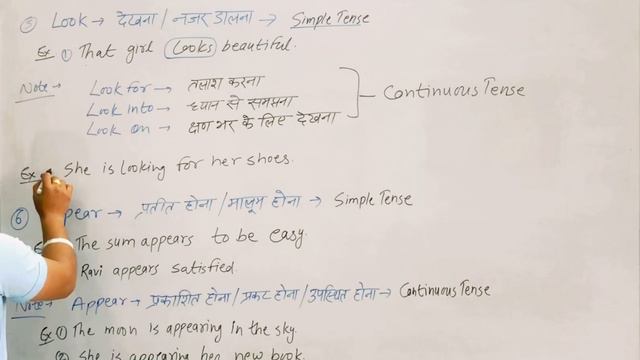 ⑤ Look → देखना / नजर डालना → Simple Tense
Ex ① That girl looks beautiful.
Note → Look for → तलाश करना
Look into → ध्यान से समझना
Look on → क्षण भर के लिए देखना
Continuous Tense
Ex She is looking for her shoes.
⑥ Appear → प्रतीत होना / मालूम होना → Simple Tense
The sum appears to be easy.
Ravi appears satisfied.
Note → Appear → प्रकाशित होना / प्रकट होना / उपस्थित होना → Continuous Tense
Ex ① The moon is appearing in the sky.
② She is appearing her new book.